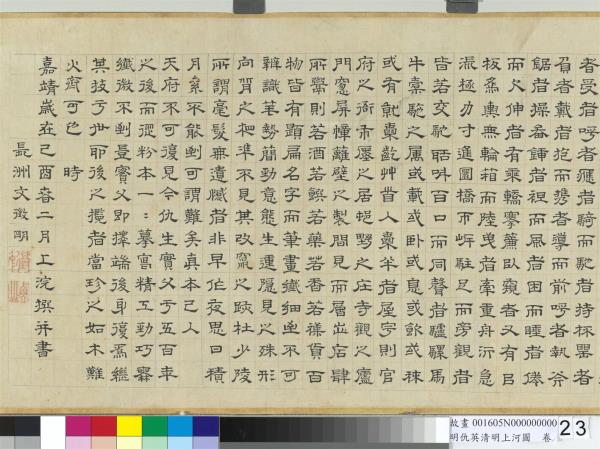 者受者呼者獲者騎而馳者持杯罌者
負者戴者抱而攜者導而前呵者執斧
鋸者操畚鍤者袒而風者困而睡者倦
而欠伸者有乘轎搴簾臥窺者又有吕
板為輿無輪箱而陸曳者牽重舟泝急
流極力寸進圜橋而岸駐足而旁觀者
皆若交馳咻百口而同聲者驢騾馬
牛橐駝之屬或載或臥或息或飲或秣
或有就橐齕艸首入橐半者屋宇則官
府之衙市廛之居邨墅之庄寺觀之廬
門窓屏幛籬壁之製間見而層出店肆
所鬻則若酒若饌若藥若香若襍貨百
物皆有題扁名字而筆畫纖細幾不可
辨識筆勢簡勁意態生運隱見之殊形
向背之相準不見其改竄之跡杜少陵
所謂毫髮無遺憾者非早作夜思日積
月絫不能到可謂難矣真本已入
天府不可復見今仇生實父于五百年
之後而粉本一〻摹寫精工勁巧
纖微不到實父即擇端後身復為繼
其技于世耶後之攬者當珍之如木難
火齊可也 時
嘉靖歲在己酉春二月上浣撰并書
長洲文徵明
故畫 001605N000000000
明仇英清明上河圖 卷
23